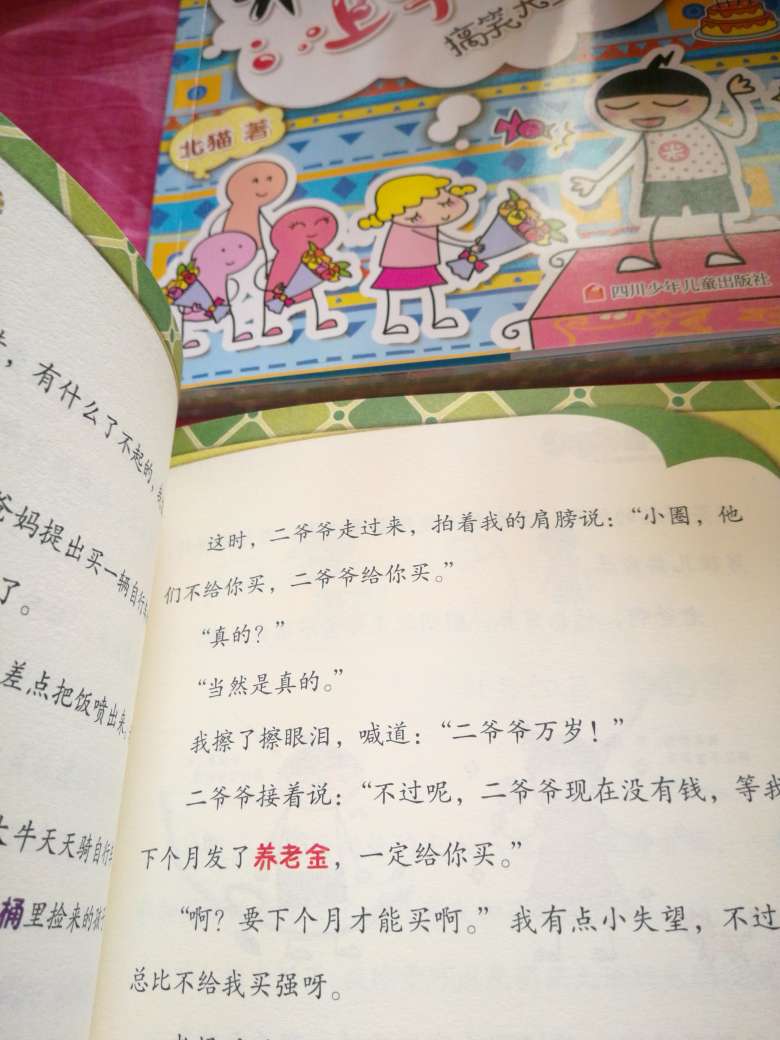 上
搞笑大
北猫 著
米
四川少年儿童出版社
，有什么了不起的，
爸妈提出买一辆自行
了。
差点把饭喷出来
牛天天骑自行
桶里捡来的孩
这时，二爷爷走过来，拍着我的肩膀说：“小圈，他
们不给你买，二爷爷给你买。”
“真的？”
“当然是真的。”
我擦了擦眼泪，喊道：“二爷爷万岁！”
二爷爷接着说：“不过呢，二爷爷现在没有钱，等我
下个月发了养老金，一定给你买。”
“啊？要下个月才能买啊。”我有点小失望，不过
总比不给我买强呀。